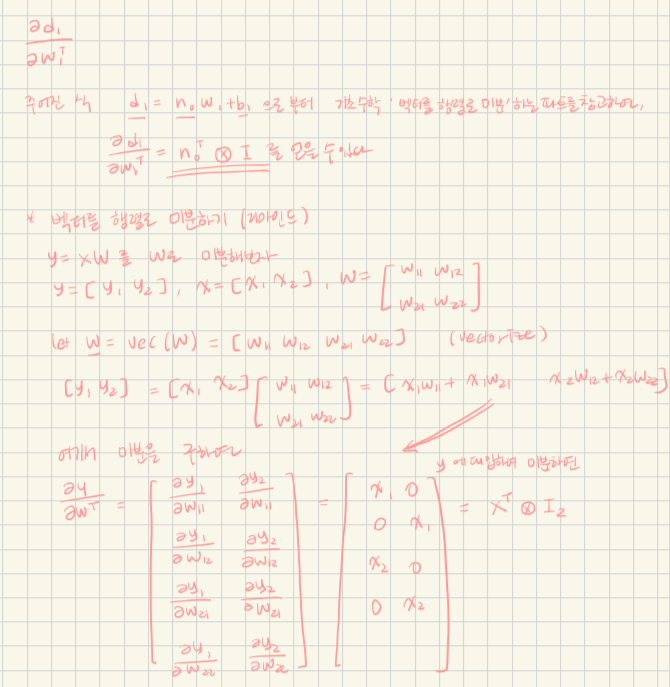 ∂d₁/∂w₁ᵀ
주어진 식 d₁ = n₀w₁+b₁ 으로부터 기초수학 '벡터를 행렬로 미분'하는 파트를 참고하여,
∂d₁/∂w₁ᵀ = n₀ᵀ ⊗ I 를 얻을 수 있다
* 벡터를 행렬로 미분하기 (리마인드)
y = xW 를 W로 미분해보자
y = [y₁ y₂], x = [x₁ x₂], W = [w₁₁ w₁₂; w₂₁ w₂₂]
let w = vec(W) = [w₁₁ w₁₂ w₂₁ w₂₂] (vectorize)
[y₁ y₂] = [x₁ x₂][w₁₁ w₁₂; w₂₁ w₂₂] = [x₁w₁₁ + x₁w₂₁ x₂w₁₂ + x₂w₂₂]
여기서 미분을 구하면
y에 대입하여 미분하면
∂y/∂wᵀ = [∂y₁/∂w₁₁ ∂y₂/∂w₁₁; ∂y₁/∂w₁₂ ∂y₂/∂w₁₂; ∂y₁/∂w₂₁ ∂y₂/∂w₂₁; ∂y₁/∂w₂₂ ∂y₂/∂w₂₂] = [x₁ 0; 0 x₁; x₂ 0; 0 x₂] = xᵀ ⊗ I₂